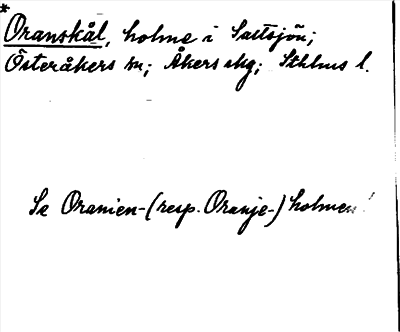 * Oranskål, holme i Saltsjön;
Österåkers sn; Åkers skg; Sthlms l.
Se Oranien- (resp. Oranje-) holmen!